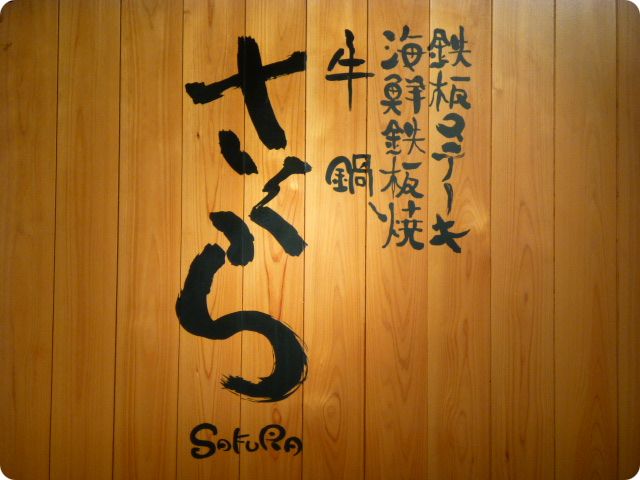 鉄板ステーキ
海鮮鉄板焼
牛鍋
さくら
SAKURA